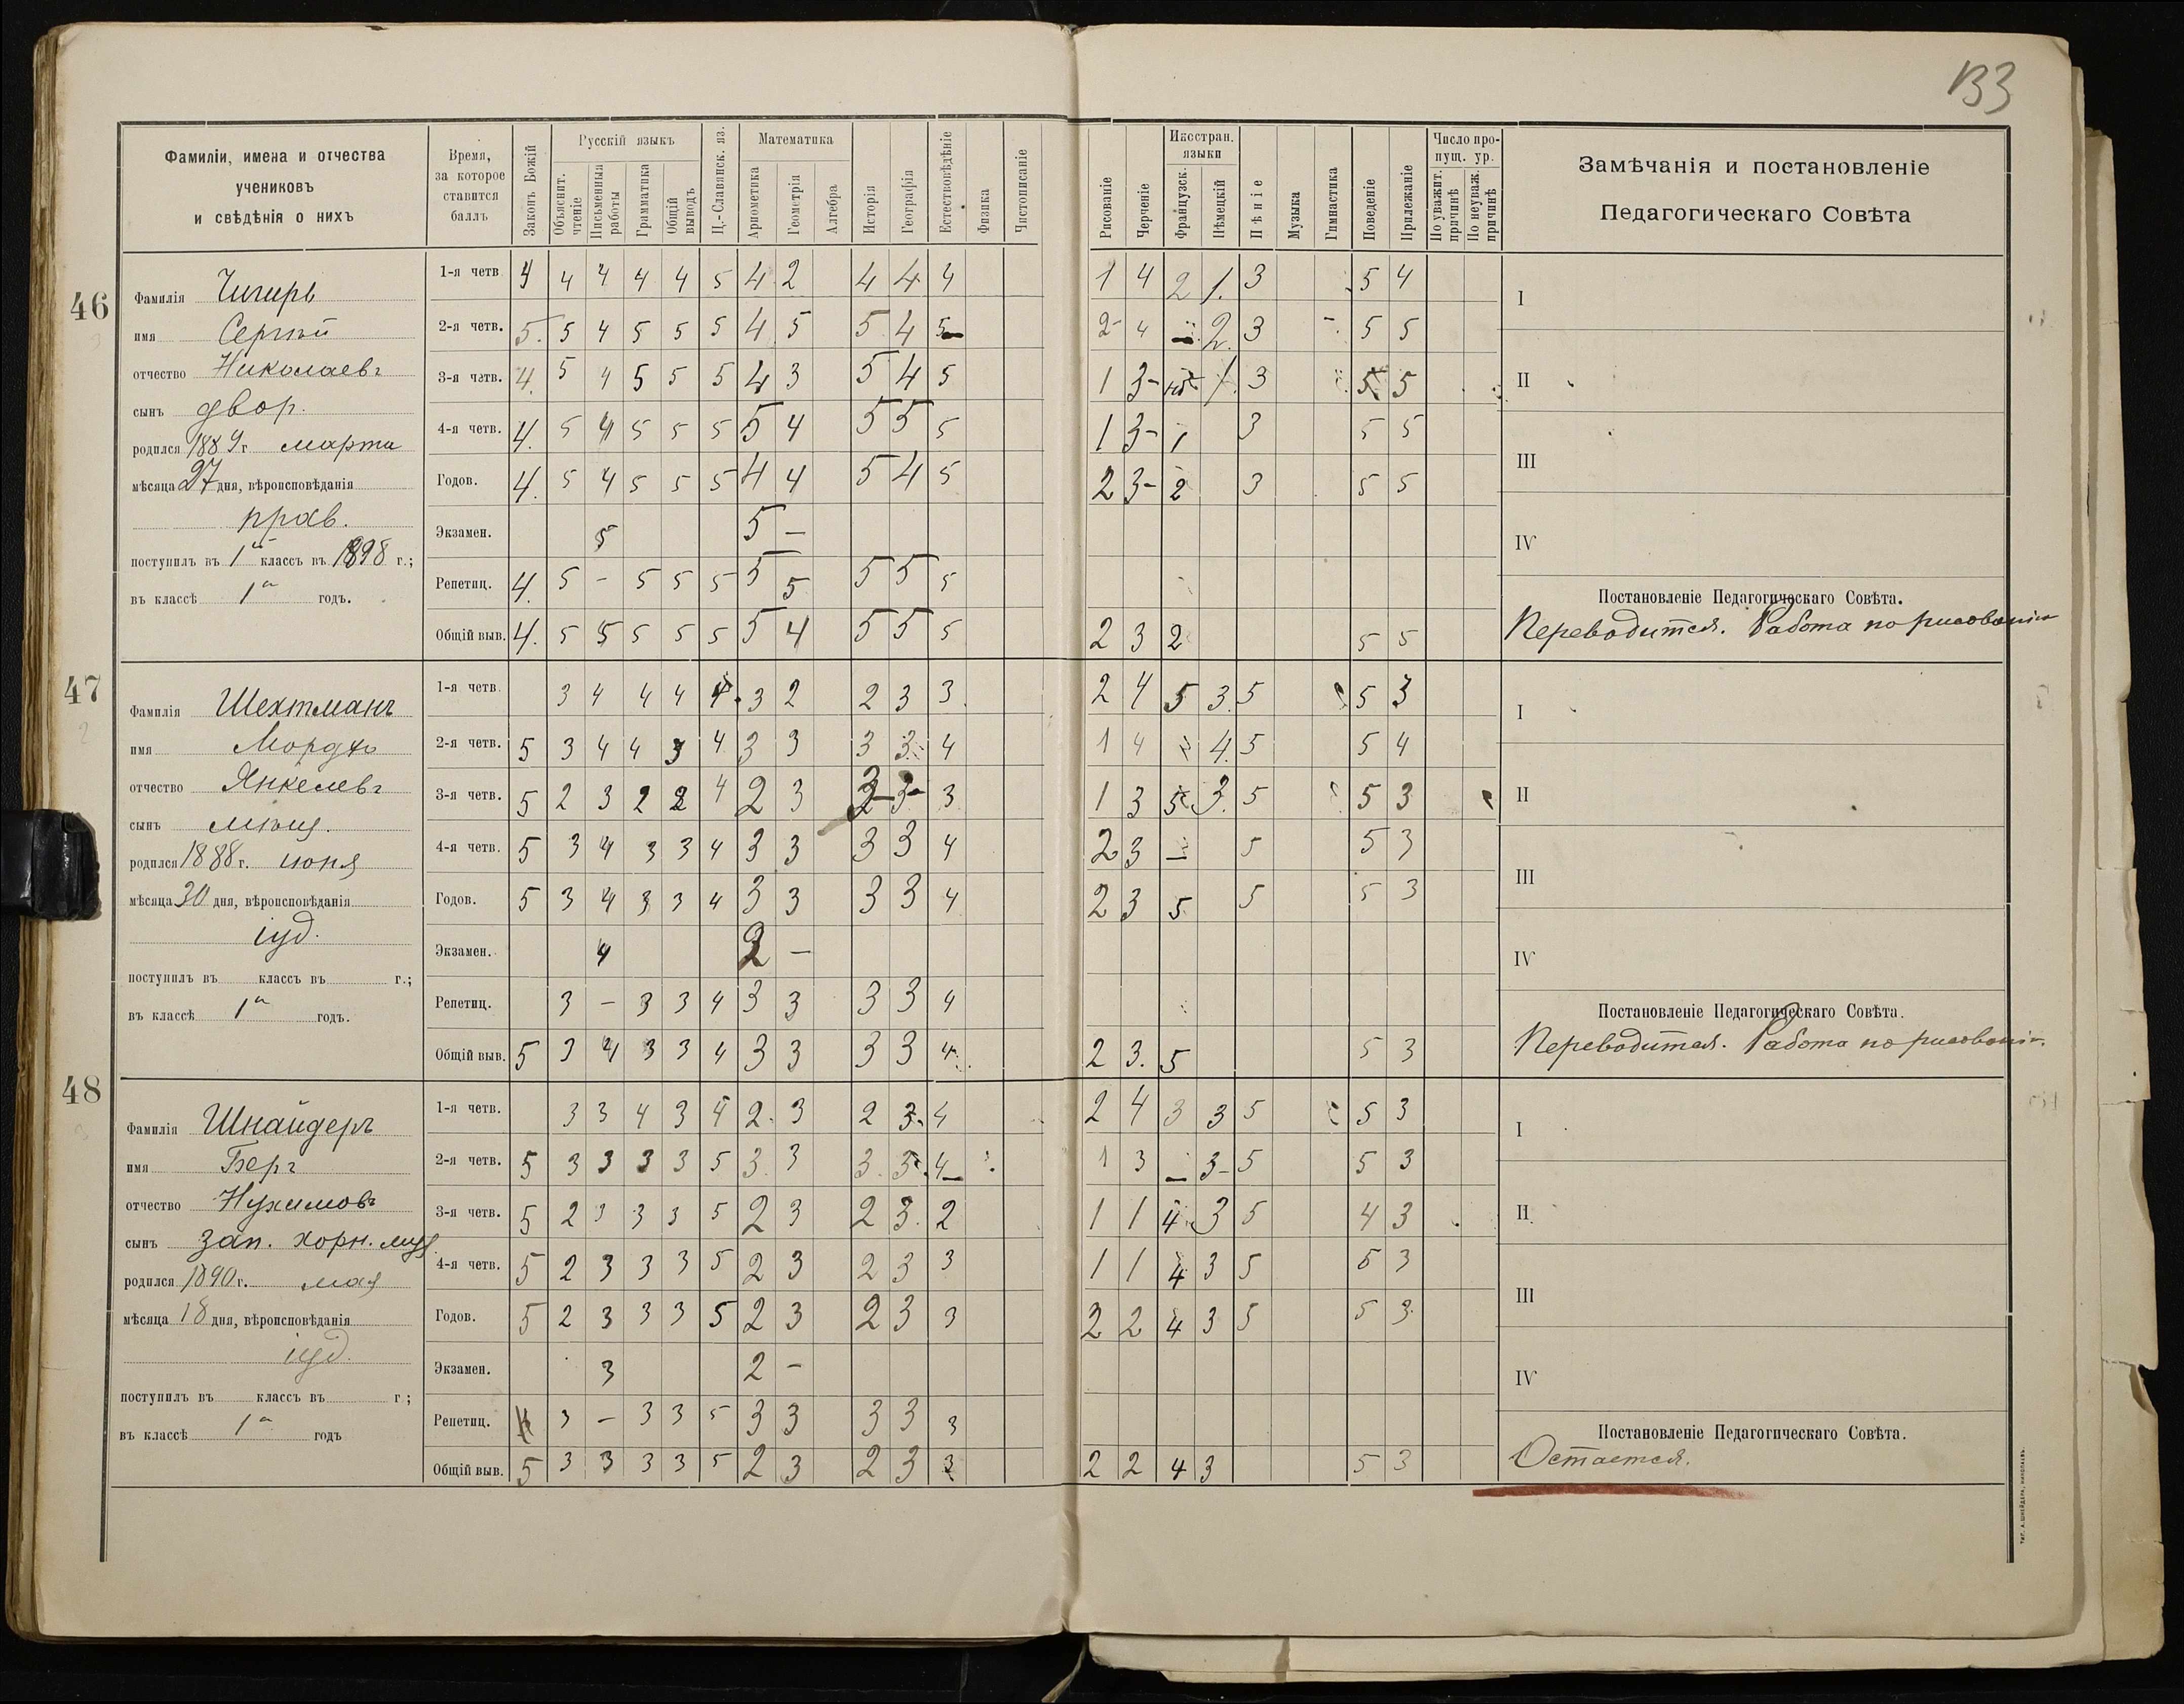 133
Фамиліи, имена и отчества
учениковъ
и свѣдѣнія о нихъ
Время,
за которое
ставится
баллъ
Законъ Божій
Русскій языкъ
Объяснит. чтеніе
Письменныя работы
Грамматика
Общій выводъ
Ц.-Славянск. яз.
Математика
Ариѳметика
Геометрія
Алгебра
Исторія
Географія
Естествовѣдѣніе
Физика
Чистописаніе
Рисованіе
Черченіе
Иностран. языки
Французск.
Нѣмецкій
Пѣніе
Музыка
Гимнастика
Поведеніе
Прилежаніе
Число пропущ. ур.
По уважит. причинѣ
По неуваж. причинѣ
Замѣчанія и постановленіе
Педагогическаго Совѣта
46
Фамилія Чигирь
имя Сергѣй
отчество Николаевъ
сынъ двор.
родился 1889 г. марта
мѣсяца 27 дня, вѣроисповѣданія
прав.
поступилъ въ 1й классъ въ 1898 г.;
въ классѣ 1й годъ.
1-я четв. 4 4 4 4 4 5 4 2 4 4 4 1 4 2 1. 3 5 4
2-я четв. 5. 5 4 5 5 5 4 5 5 4 5 2- 4 – 2. 3 5 5
3-я четв. 4. 5 4 5 5 5 4 3 5 4 5 1 3- 1 3 5 5
4-я четв. 4. 5 4 5 5 5 5 4 5 5 5 1 3- 1 3 5 5
Годов. 4. 5 4 5 5 5 4 4 5 4 5 2 3- 2 3 5 5
Экзамен. 5 5 –
Репетиц. 4. 5 – 5 5 5 5 5 5 5 5
Общій выв. 4. 5 5 5 5 5 5 4 5 5 5 2 3 2 5 5
I
II
III
IV
Постановленіе Педагогическаго Совѣта.
Переводится. Работа по рисованію
47
Фамилія Шехтманъ
имя Мордко
отчество Янкелевъ
сынъ мѣщ.
родился 1888 г. іюня
мѣсяца 30 дня, вѣроисповѣданія
іуд.
поступилъ въ классъ въ г.;
въ классѣ 1й годъ.
1-я четв. 3 4 4 4 4 3 2 2 3 3 2 4 5 3. 5 5 3
2-я четв. 5 3 4 4 3 4 3 3 3 3 4 1 4 4. 5 5 4
3-я четв. 5 2 3 2 2 4 2 3 3- 3 1 3 5 3. 5 5 3
4-я четв. 5 3 4 3 3 4 3 3 3 3 4 2 3 – 5 5 3
Годов. 5 3 4 3 3 4 3 3 3 3 4 2 3 5 5 5 3
Экзамен. 4 2 –
Репетиц. 3 – 3 3 4 3 3 3 3 4
Общій выв. 5 3 4 3 3 4 3 3 3 3 4 2 3. 5 5 3
I
II
III
IV
Постановленіе Педагогическаго Совѣта.
Переводится. Работа по рисованію.
48
Фамилія Шнайдеръ
имя Беръ
отчество Нухимовъ
сынъ зап. хорн. муз
родился 1890 г. мая
мѣсяца 18 дня, вѣроисповѣданія
іуд.
поступилъ въ классъ въ г;
въ классѣ 1й годъ
1-я четв. 3 3 4 3 4 2 3 2 3 4 2 4 3 3 5 5 3
2-я четв. 5 3 3 3 3 5 3 3 3 3 4 1 3 – 3- 5 5 3
3-я четв. 5 2 3 3 3 5 2 3 2 3. 2 1 1 4 3 5 4 3
4-я четв. 5 2 3 3 3 5 2 3 2 3 3 1 1 4 3 5 5 3
Годов. 5 2 3 3 3 5 2 3 2 3 3 2 2 4 3 5 5 3
Экзамен. 3 2 –
Репетиц. 3 – 3 3 5 3 3 3 3 3
Общій выв. 5 3 3 3 3 5 2 3 2 3 3 2 2 4 3 5 3
I
II
III
IV
Постановленіе Педагогическаго Совѣта.
Остается.
Тип. А. Шнейдера, Николаевъ.